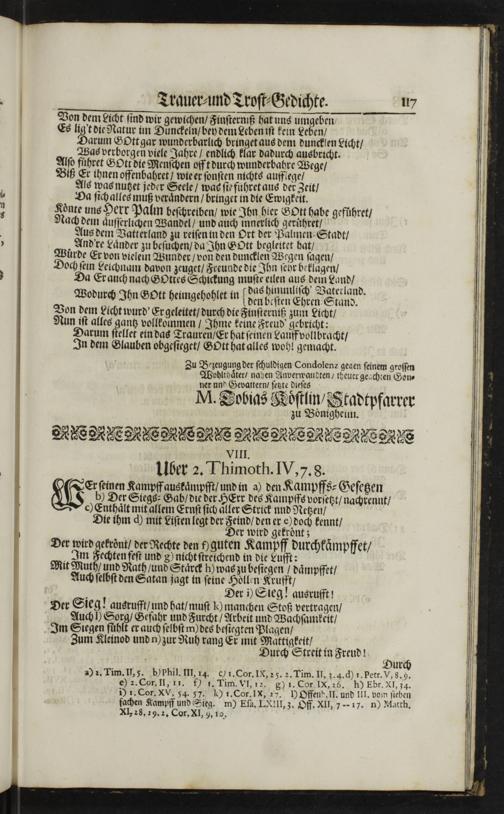 Trauer-und Trost-Gedichte. 117
Von dem Licht sind wir gewichen/ Finsternuß hat uns umgeben
Es lig't die Natur im Dunckeln/ bey dem Leben ist kein Leben/
Darum GOtt gar wunderbarlich bringet aus dem duncklen Licht/
Was verborgen viele Jahre/ endlich klar dadurch ausbricht.
Also führet GOtt die Menschen offt durch wunderbahre Wege/
Biß Er ihnen offenbahret/ wie er sonsten nichts aufflege/
Als was nutzet jeder Seele/ was sie führet aus der Zeit/
Da sich alles muß verändern/ bringet in die Ewigkeit.
Könte uns Herr Palm beschreiben/ wie Ihn hier GOtt habe geführet/
Nach dem äusserlichen Wandel/ und auch innerlich gerühret/
Aus dem Vatterland zu reisen in den Ort der Palmen-Stadt/
And're Länder zu besuchen/ da Ihn GOtt begleitet hat/
Würde Er von vielem Wunder/ von den duncklen Wegen sagen/
Doch sein Leichnam davon zeuget/ Freunde die Ihn sehr beklagen/
Da Er auch nach GOttes Schickung muste eilen aus dem Land/
Wodurch Ihn GOtt heimgehohlet in { das himmlisch' Vaterland.
den besten Ehren Stand.
Von dem Licht wurd' Er geleitet/ durch die Finsterniß zum Licht/
Nun ist alles gantz vollkommen/ Ihme keine Freud' gebricht:
Darum stellet ein das Trauren/ Er hat seinen Lauff vollbracht/
In dem Glauben obgesieget/ GOtt hat alles wohl gemacht.
Zu Bezeugung der schuldigen Condolenz gegen seinem grossen
Wohlthäter/ nahen Anverwandten/ theuer geachten Gön-
ner und Gevattern/ setzte dieses
M. Tobias Köstlin/ Stadtpfarrer
zu Bönigheim.
VIII.
Uber 2. Thimoth. IV, 7. 8.
WEr seinen Kampff auskämpfft/ und in a) den Kampffs-Gesetzen
b) Der Siegs-Gab/ die der HErr des Kampffs vorsetzt/ nachrennt/
c) Enthält mit allem Ernst sich aller Strick und Netzen/
Die ihm d) mit Listen legt der Feind/ den er e) doch kennt/
Der wird gekrönt;
Der wird gekrönt/ der Rechte den f) guten Kampff durchkämpffet/
Im Fechten fest und g) nicht streichend in die Lufft:
Mit Muth/ und Rath/ und Stärck h) was zu besiegen/ dämpffet/
Auch selbst den Satan jagt in seine Höllen Krufft/
Der i) Sieg! ausrufft!
Der Sieg! ausrufft/ und hat/ must k) manchen Stoß vertragen/
Auch l) Sorg/ Gefahr und Furcht/ Arbeit und Wachsamkeit/
Im Siegen fühlt er auch selbst m) des besiegten Plagen/
Zum Kleinod und n) zur Ruh rang Er mit Mattigkeit/
Durch Streit in Freud!
Durch
a) 2. Tim. II, 5. b) Phil. III, 14. c) 1. Cor. IX, 25. 2. Tim. II, 3. 4. d) 1. Petr. V, 8. 9.
e) 2. Cor. II, 11. f) 1. Tim. VI, 12. g) 1. Cor. IX, 26. h) Ebr. XI, 34.
i) 1. Cor. XV, 54. 57. k) 1. Cor. IX, 27. l) Offenb. II. und III. vom sieben
fachen Kampff und Sieg. m) Esa. LXIII, 3. Off. XII, 7--17. n) Matth.
XI, 28, 29. 2. Cor. XI, 9, 10.